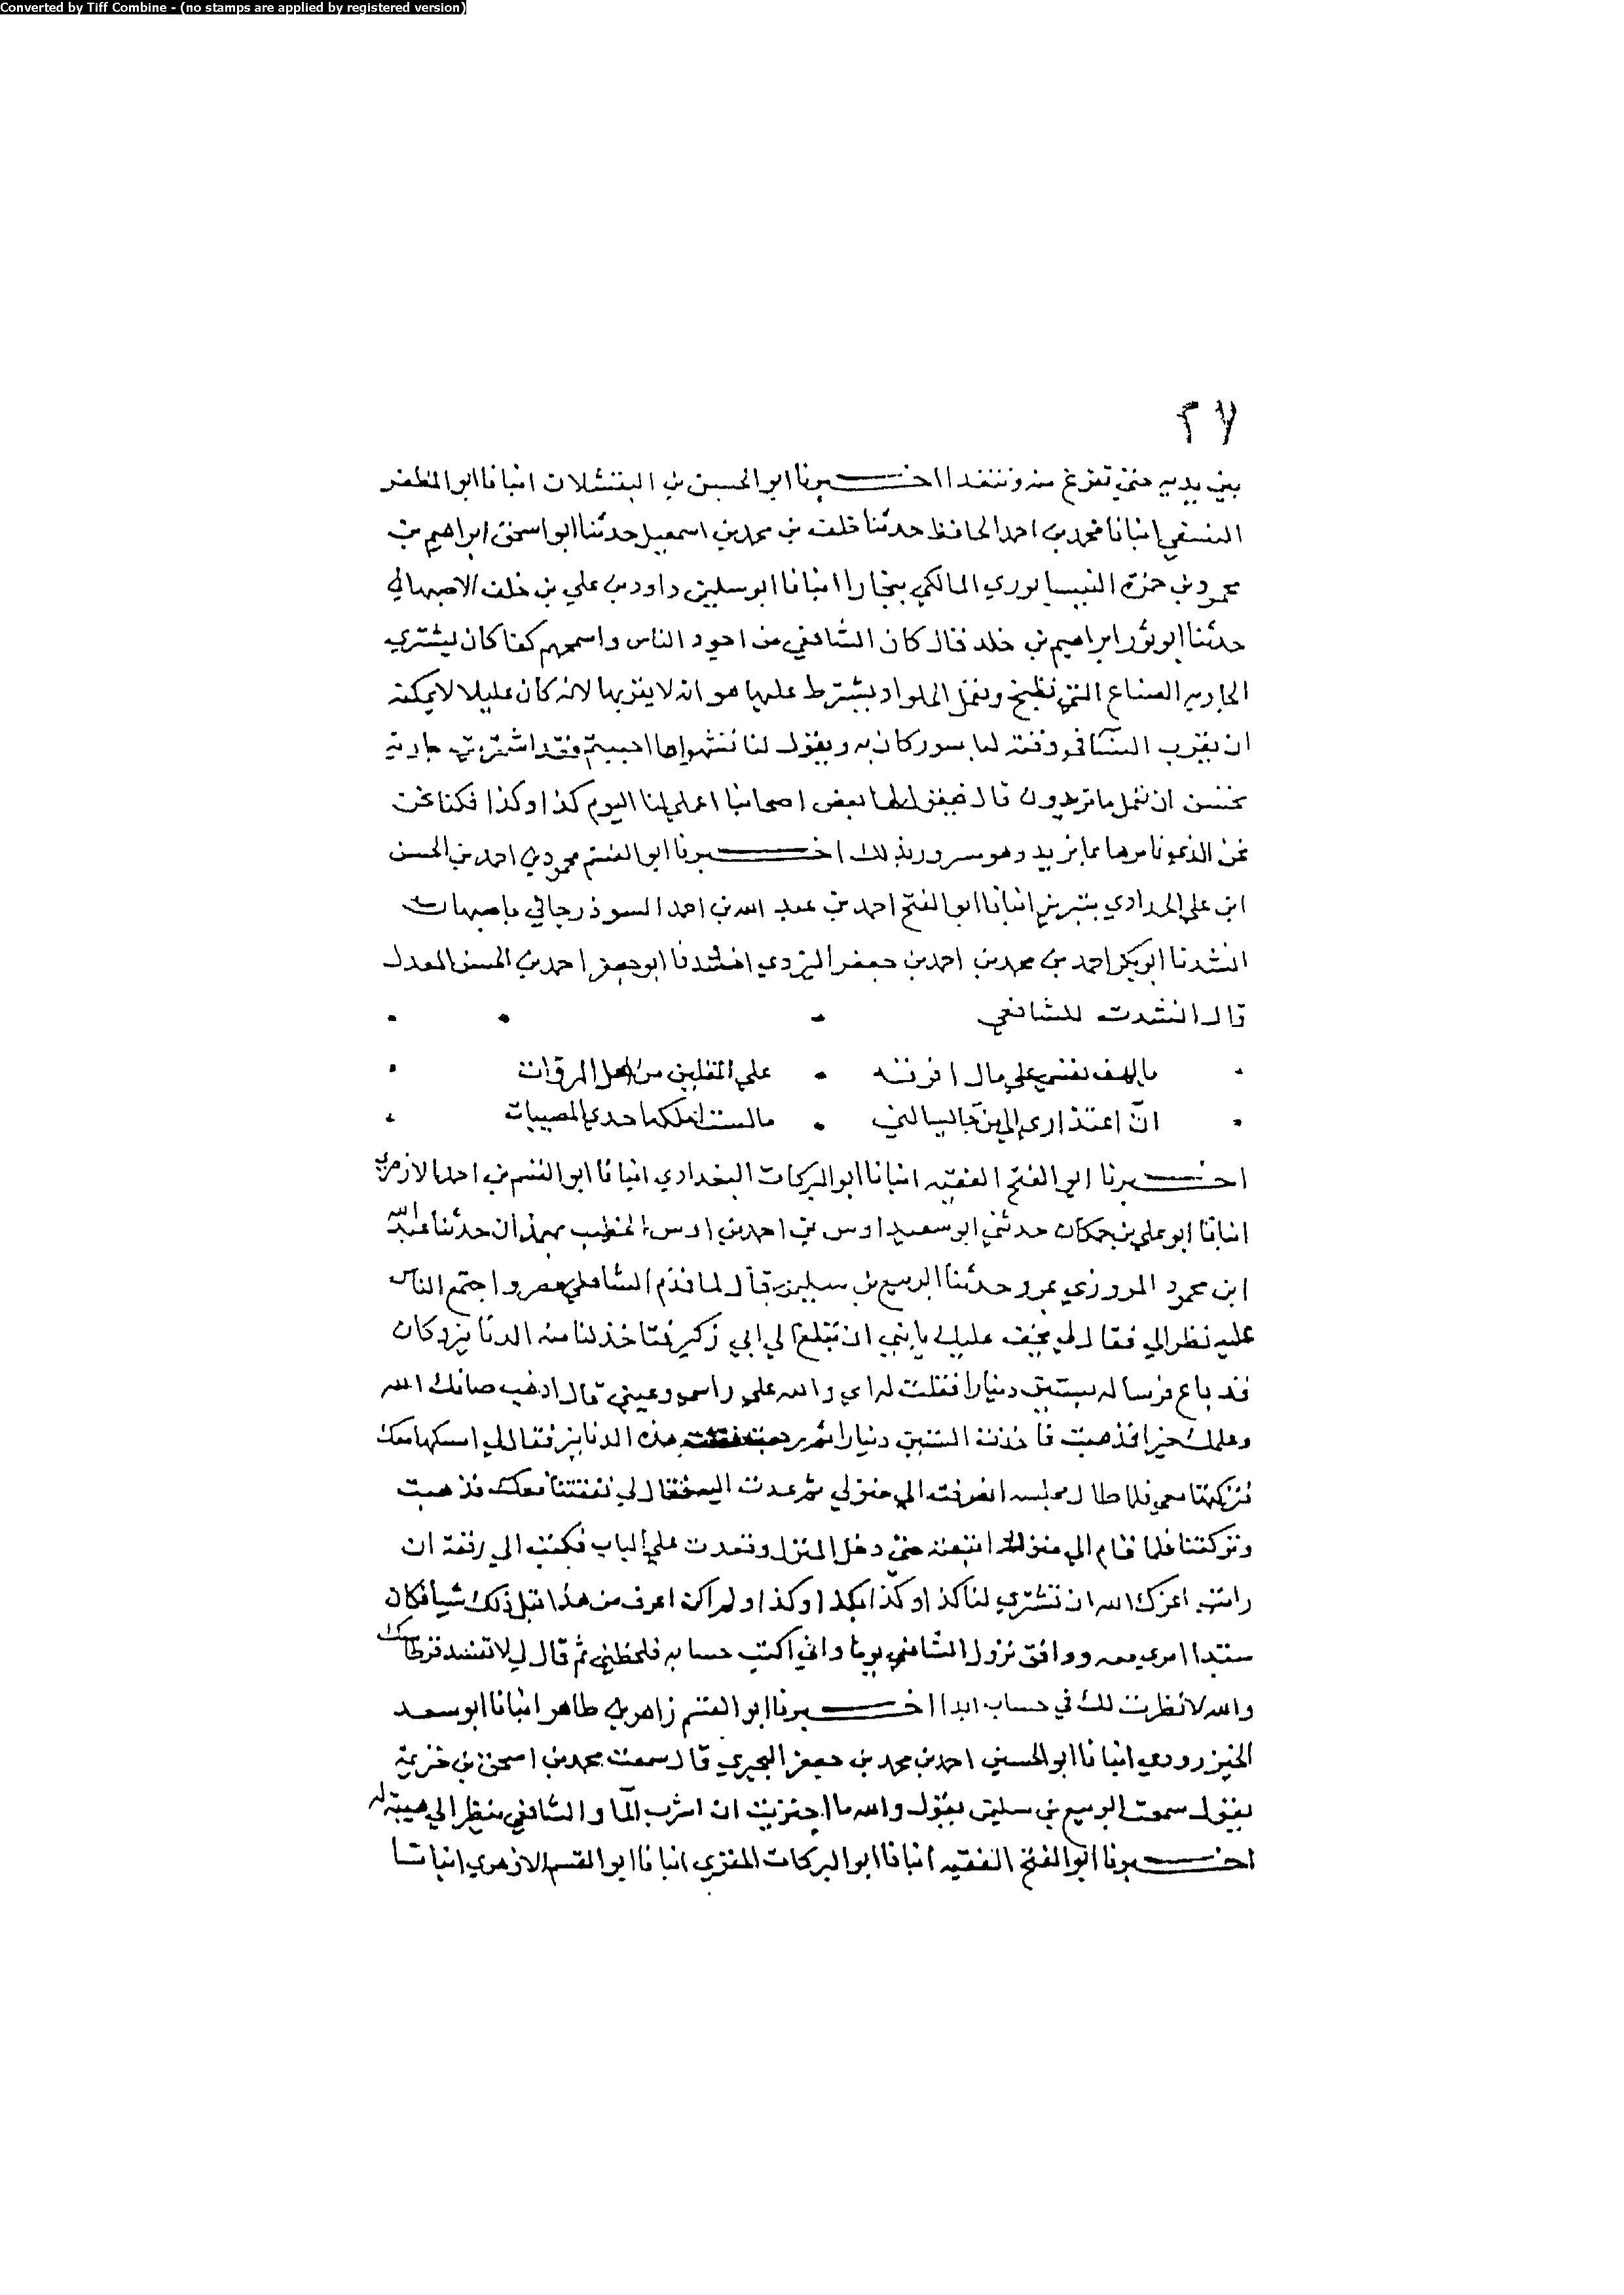 Converted by Tiff Combine - (no stamps are applied by registered version)
٢٧
بين يديه حتى تفرغ منه وتتغدا اخبرنا ابو الحسين بن انبانا ابو المظفر
النسفي انبانا محمد بن احمد الحافظ حدثنا خلف بن محمد بن اسمعيل حدثنا ابو اسحق ابراهيم بن
محمود بن حمزة النيسابوري المالكي ببخارا انبانا ابو سليمن داود بن علي بن خلف الاصبهاني
حدثنا ابو ثور ابراهيم بن خلد قال كان الشافعي من اجود الناس واسمحهم كفا كان يشتري
الجارية الصناع التي تطبخ وتعمل الحلوا ويشترط عليها هو ان لا يقربها لانه كان عليلا لا يمكنه
ان يقرب النسآ في وقته لباسور كان به ويقول لنا تشهوا ما احببتم فقد اشتريت جارية
تحسن ان تعمل ما تريدون قال فيقول لها بعض اصحابنا اعملي لنا اليوم كذا وكذا فكنا نحن
نحن الذي نامرها بما نريد وهو مسرور بذلك اخبرنا ابو الفتح محمود بن احمد بن الحسن
ابن علي الحدادي بتبريز انبانا ابو الفتح احمد بن عبد الله بن احمد السوذرجاني باصبهان
انشدنا ابو بكر احمد بن محمد بن احمد بن جعفر اليزدي انشدنا ابو جعفر احمد بن الحسن المعدل
قال انشدت للشافعي
يا لهف نفسي علي مال افرقه علي المقلين من اهل المروآت
ان اعتذاري الي من جا يسالني ما لست املكه احدي المصيبات
اخبرنا ابو الفتح الفقيه انبانا ابو البركات البغدادي انبانا ابو القسم بن احمد الازهري
انبانا ابو علي بن حمكان حدثني ابو سعيد اوس بن احمد بن اوس الخطيب بهمذان حدثنا عبد الله
ابن محمود المروزي بمرو حدثنا الربيع بن سليمن قال لما قدم الشافعي مصر واجتمع الناس
عليه نظر الي فقال لي يخف عليك يا بني ان تبلغ لي ابي زكير فتاخذ لنا منه الدنانير وكان
قد باع فرسا له بستين دينارا فقلت له اي والله علي راسي وعيني قال اذهب صانك الله
وعلمك خيرا فذهبت فاخذت الستين دينارا ثم رجعت فقلت هذه الدنانير فقال لي امسكها معك
فتركتها معي فلما طال مجلسه انصرفت الي منزلي ثم عدت اليه فقال لي نفقتنا معك فذهبت
وتركتنا فلما قام الي منزله اتبعته حتى دخل المنزل وقعدت علي الباب فكتب الي رقعة ان
رايت اعزك الله ان تشتري لنا كذا وكذا بكذا وكذا ولم اكن اعرف من هذا قبل ذلك شيا فكان
مبتدا امري معه ووافق نزول الشافعي يوما واني اكتب حسابه فلحظني ثم قال لي لا تفسد قرطاسك
والله لا نظرت لك في حساب ابدا اخبرنا ابو القسم زاهر بن طاهر انبانا ابو سعد
الخنزرودي انبانا ابو الحسين احمد بن محمد بن جعفر البحيري قال سمعت محمد بن اسحق بن خزيمة
يقول سمعت الربيع بن سليمن يقول والله ما اجتريت ان اشرب المآ والشافعي ينظر الي هيبة له
اخبرنا ابو الفتح الفقيه انبانا ابو البركات المقري انبانا ابو القسم الازهري انبانا